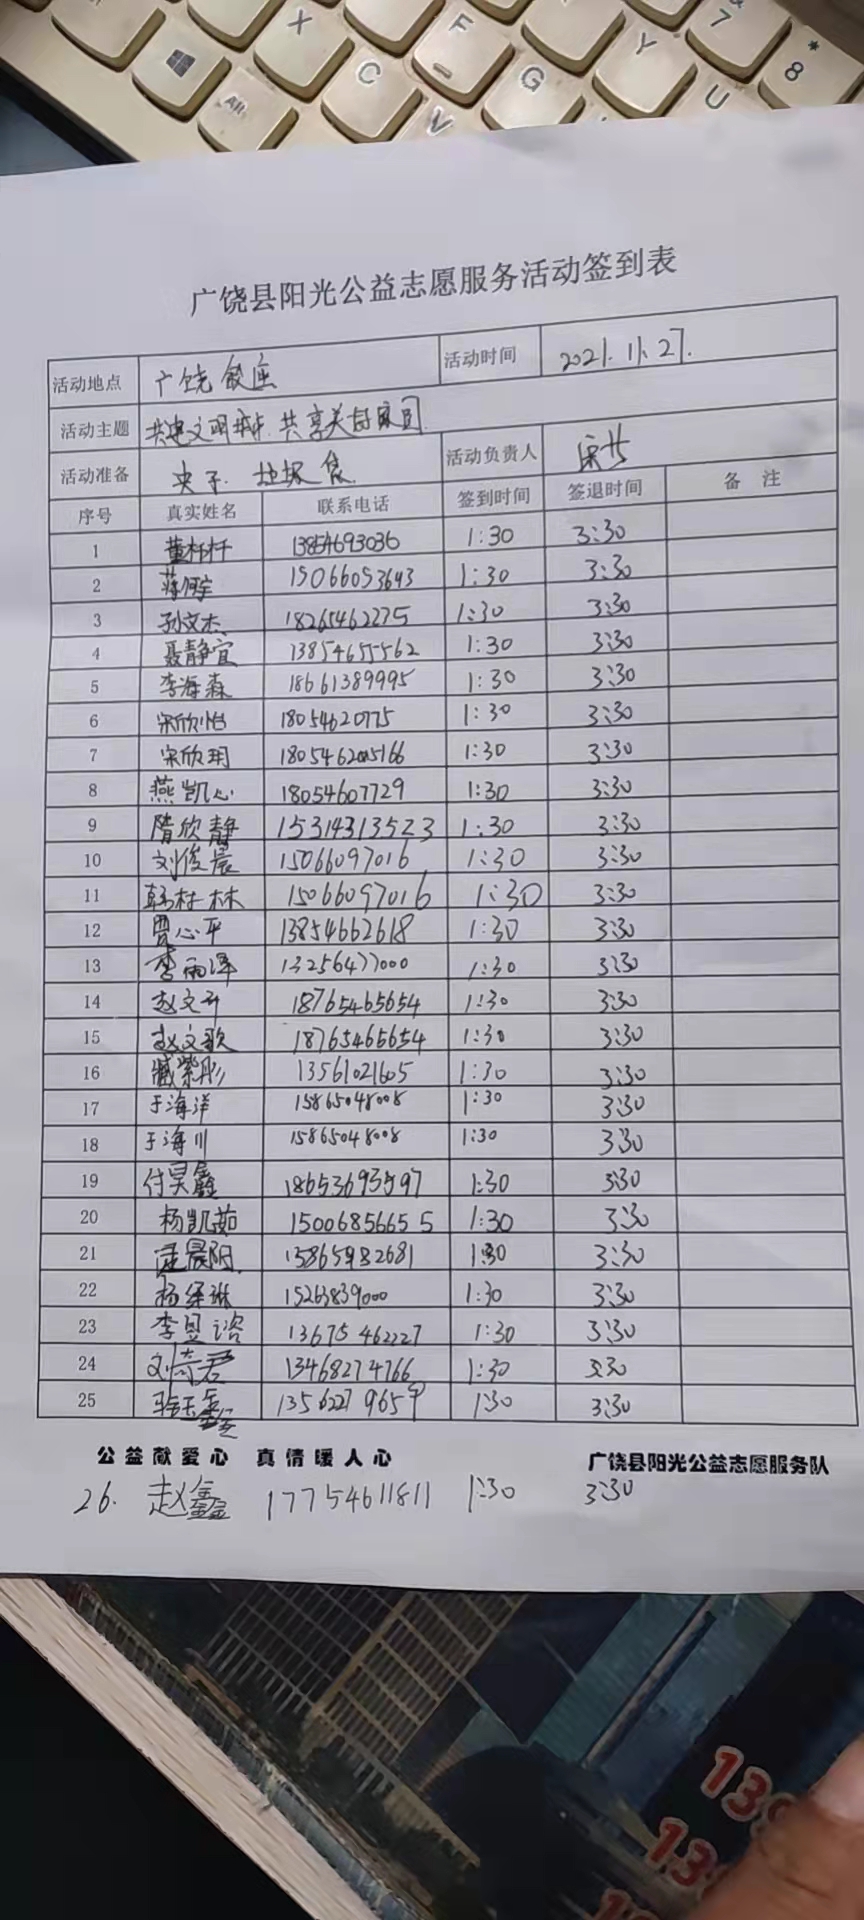 X
C
F
V
G
Y
U
7
* 8
Alt
广饶县阳光公益志愿服务活动签到表
活动地点 广饶银座 活动时间 2021.11.27.
活动主题 共建文明城市.共享美好家园
活动准备 夹子.垃圾袋 活动负责人
序号 真实姓名 联系电话 签到时间 签退时间 备注
1 董杆杆 13854693036 1:30 3:30
2 15066053643 1:30 3:30
3 孙文杰 18265462275 1:30 3:30
4 聂静宜 13854655562 1:30 3:30
5 李海森 18661389995 1:30 3:30
6 宋欣怡 1:30 3:30
7 宋欣玥 1:30 3:30
8 燕凯心 18054607729 1:30 3:30
9 隋欣静 15314313523 1:30 3:30
10 刘俊晨 15066097016 1:30 3:30
11 韩村林 15066097016 1:30 3:30
12 贾心平 13854662618 1:30 3:30
13 李雨泽 13256477000 1:30 3:30
14 赵文 18765465654 1:30 3:30
15 赵文歌 18765465654 1:30 3:30
16 臧紫彤 13561021605 1:30 3:30
17 于海洋 15865048008 1:30 3:30
18 于海川 15865048008 1:30 3:30
19 付昊鑫 18653693597 1:30 3:30
20 杨凯茹 15006856655 1:30 3:30
21 晨阳 15865932681 1:30 3:30
22 杨 琳 15263839000 1:30 3:30
23 李昱谘 13675462227 1:30 3:30
24 刘奇君 13468274766 1:30 3:30
25 13562279659 1:30 3:30
公益献爱心 真情暖人心 广饶县阳光公益志愿服务队
26. 赵鑫 17754611811 1:30 3:30